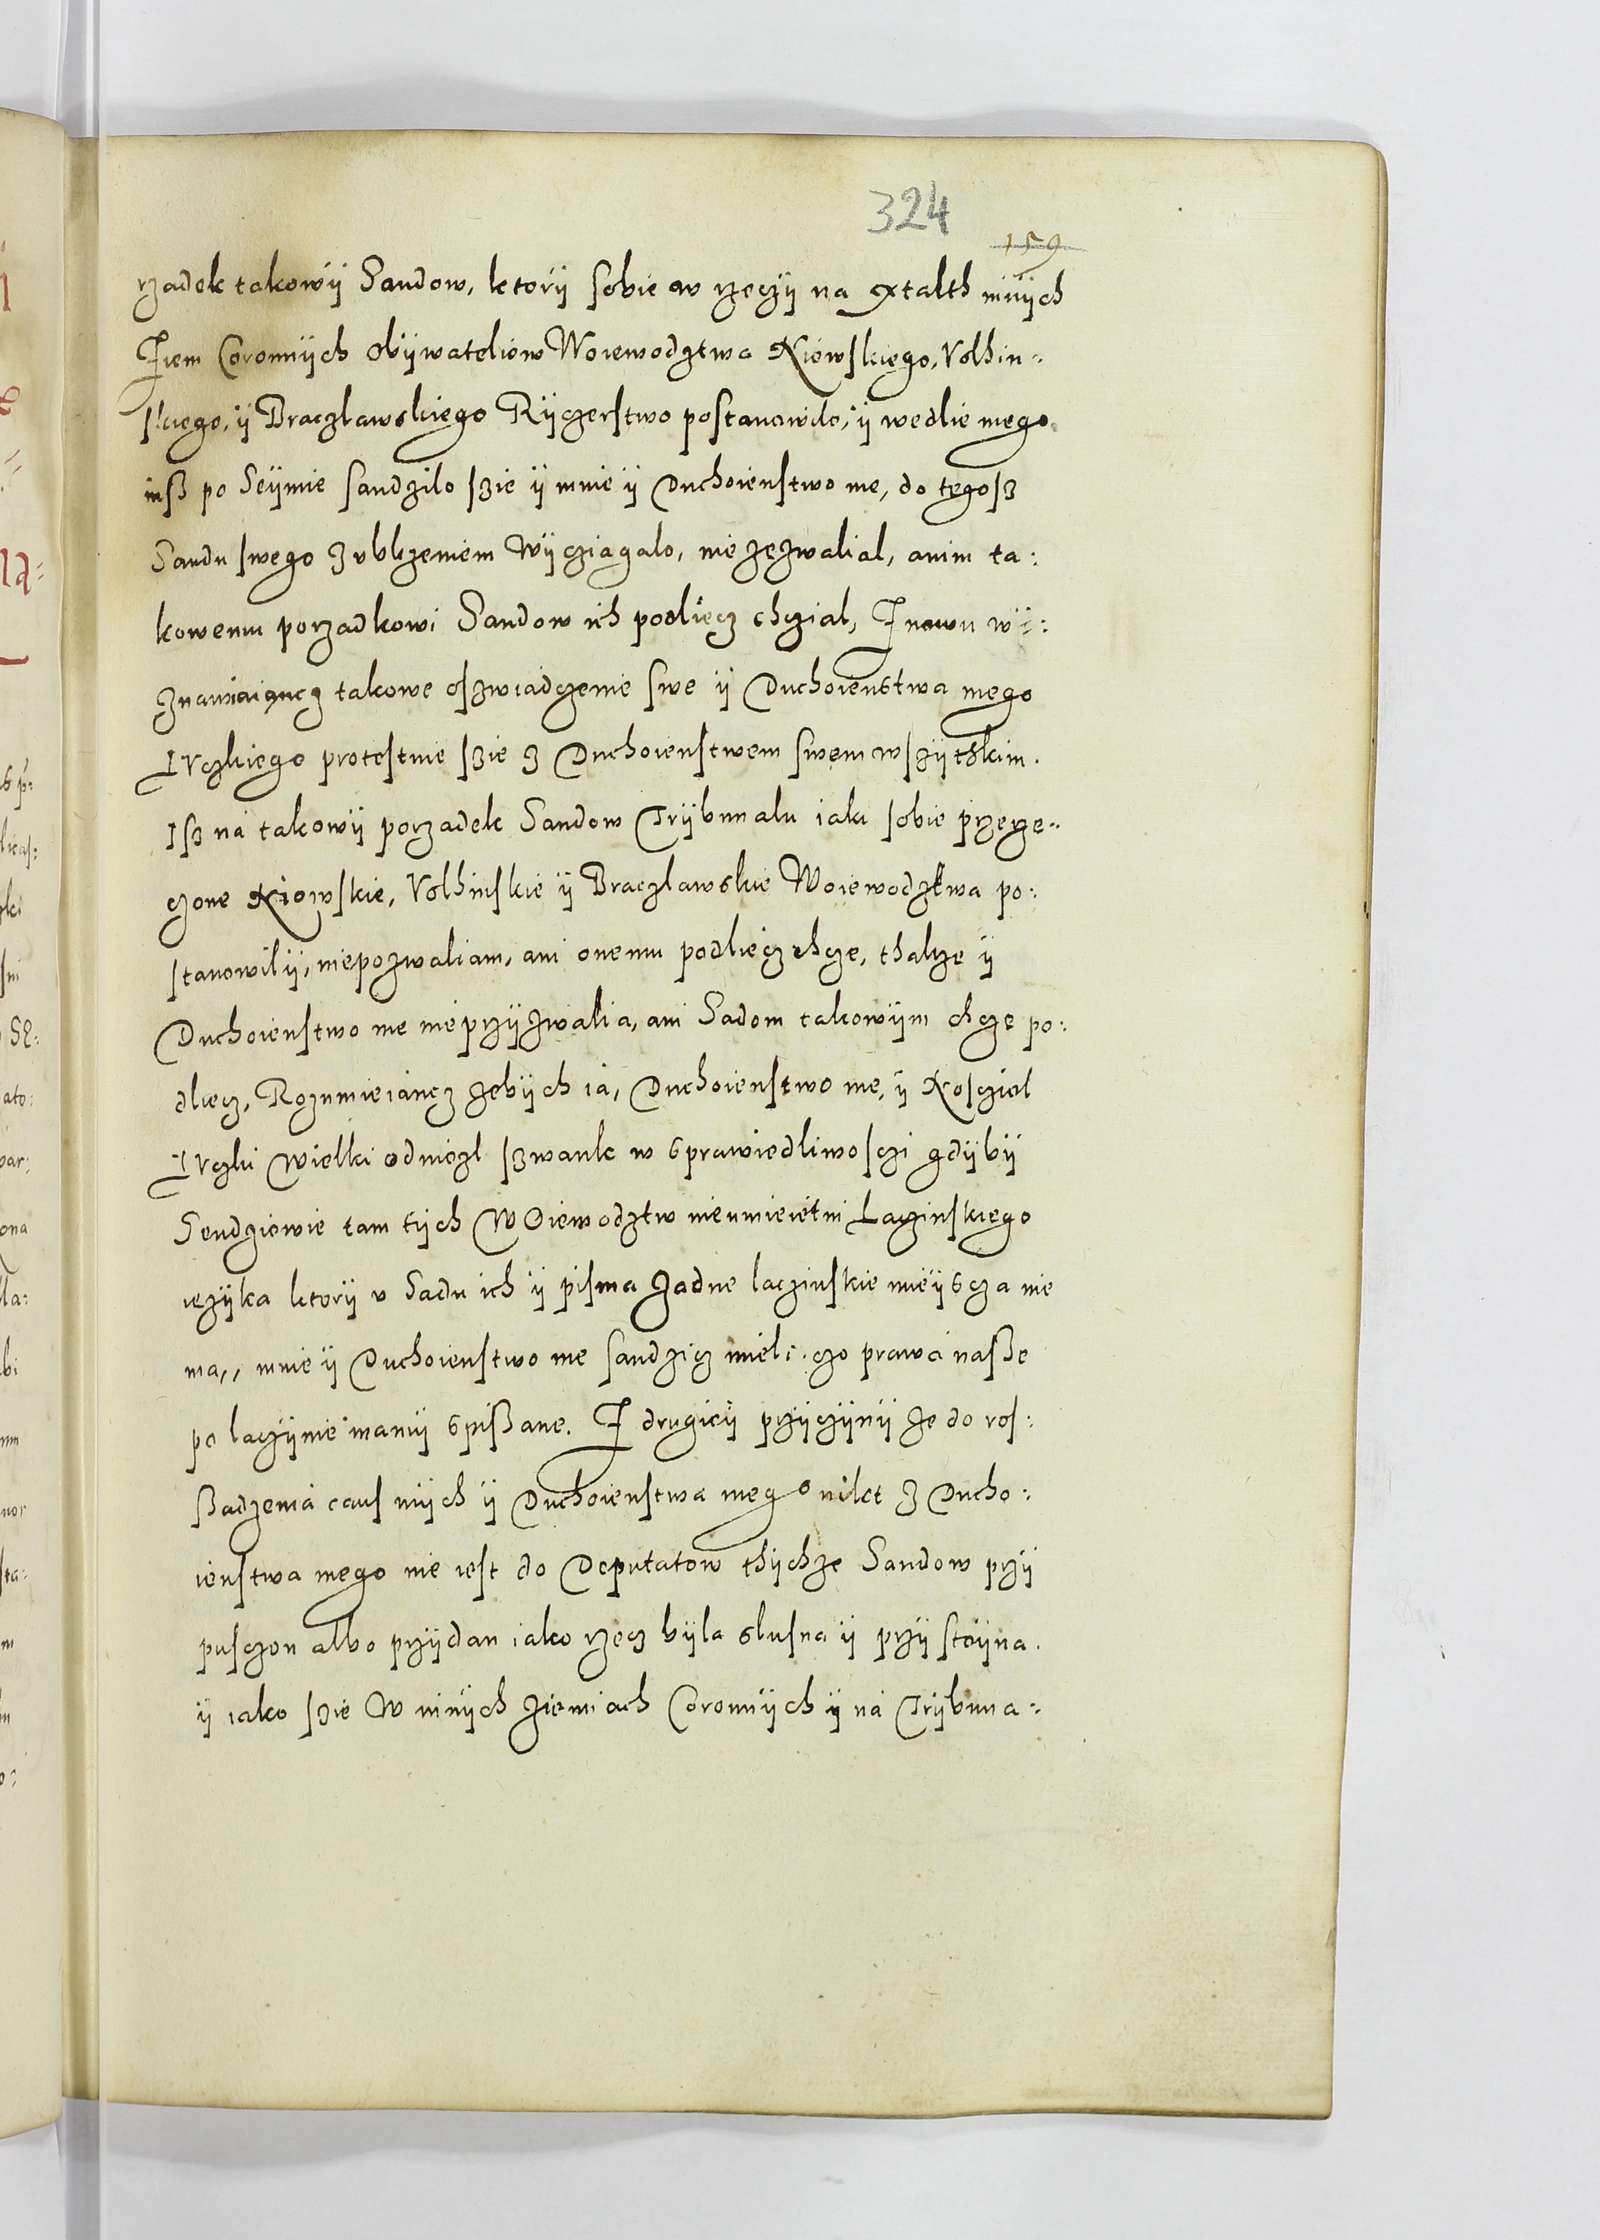 324
159
rzadek takowÿ Sandow, ktorÿ sobie w rzeczÿ na xtalth innÿch
Ziem Coronnÿch obÿwateliow Woiewodztwa Kiowskiego, Volhin-
skiego, ÿ Braczlawskiego Rÿczerstwo postanowilo, ÿ wedlie niego
iuß po Seÿmie sandzilo szie ÿ mnie ÿ Duchoienstwo me, do tegosz
Sandu swego z vbliczeniem Wÿcziagalo, nie zezwalial, anim ta:
kowemu porzadkowi Sandow ich podliecz chczial, Znowu wÿ:
znawiaiancz takowe oszwiadczenie swe ÿ Duchoienstwa mego
Lvczkiego protestuie szie z Duchoienstwem swem wszÿthkim.
Isz na takowÿ porzadek Sandow Trÿbunalu iaki sobie przerze-
czone Kiowskie, Volhinskie ÿ Braczlawskie Woiewodztwa po:
stanowilÿ, niepozwaliam, ani onemu podliecz chcze, thakze ÿ
Duchoienstwo me nieprzÿzwalia, ani Sadom takowÿm chcze po:
dliecz, Rozumieiancz zebÿch ia, Duchoienstwo me, ÿ Kosciol
Lvczki wielki odniozl szwank w sprawiedliwosczi gdÿbÿ
Sendziowie tam tÿch Woiewodztw nieumieietni Laczinskiego
iezÿka ktorÿ v Sadu ich ÿ pisma zadne laczinskie mieÿscza nie
ma,, mnie ÿ Duchoienstwo me sandzicz mieli. czo prawa naße
po laczÿnie mamÿ spißane. Z drugieÿ przÿczÿnÿ ze do ros:
ßadzenia caus mÿch ÿ Duchoienstwa mego nikt z Ducho:
ienstwa mego nie iest do Deputatow thÿchze Sandow przÿ
pusczon albo przÿdan iako rzecz bÿla slusna ÿ przÿstoÿna.
ÿ iako szie W innÿch ziemiach Coronnÿch ÿ na Trÿbuna: